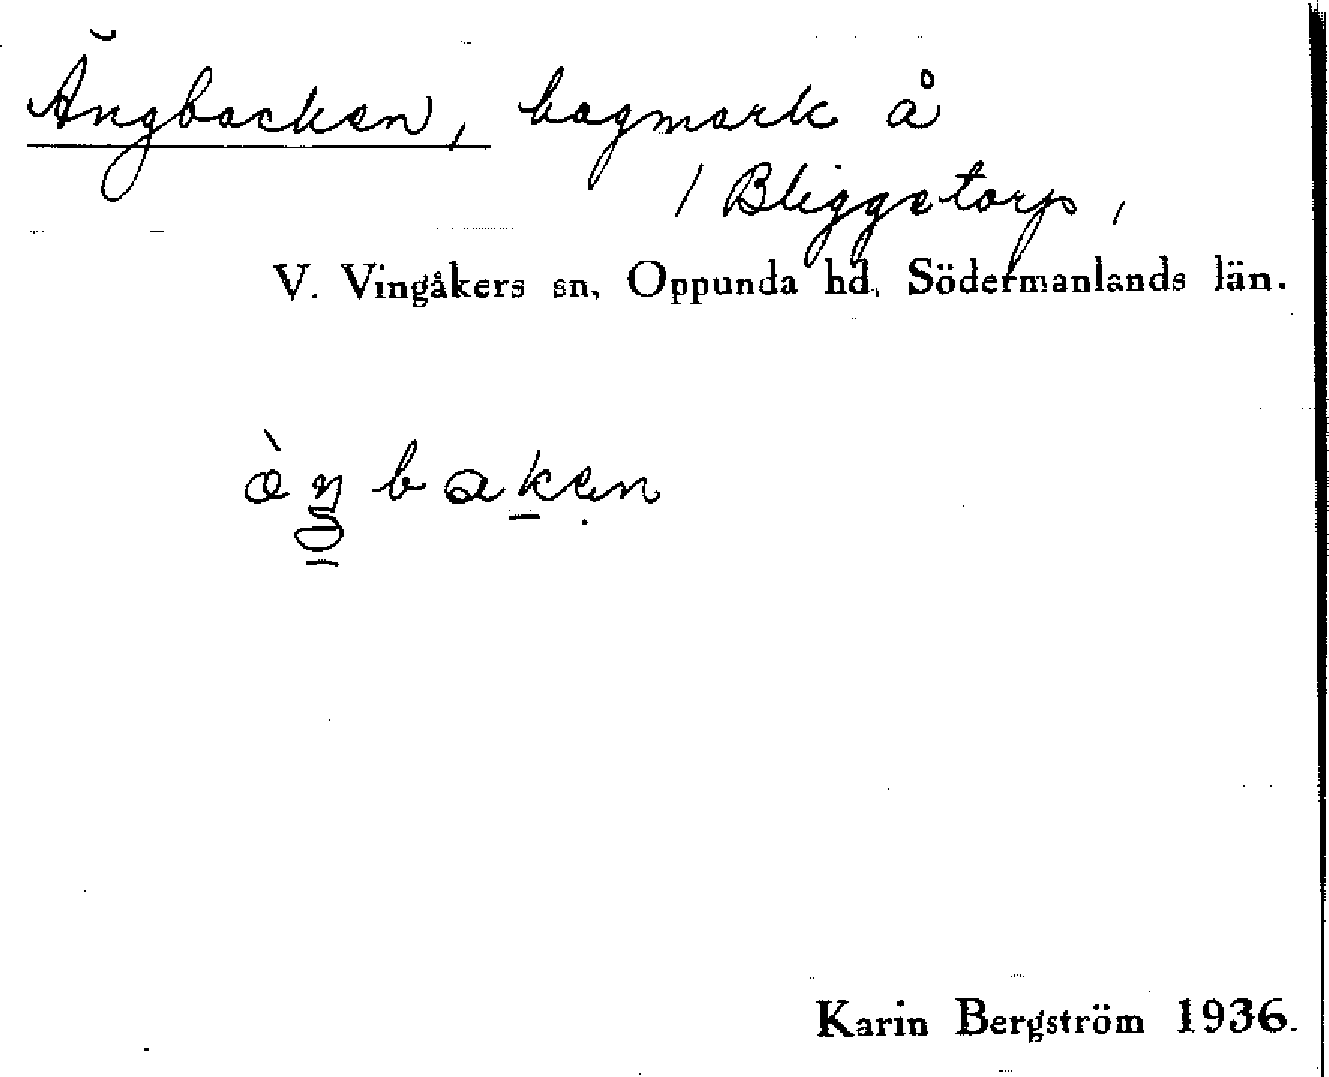 Ängbacken, hagmark å
/ Bliggetorp,
V. Vingåkers sn, Oppunda hd, Södermanlands län.
Karin Bergström 1936.